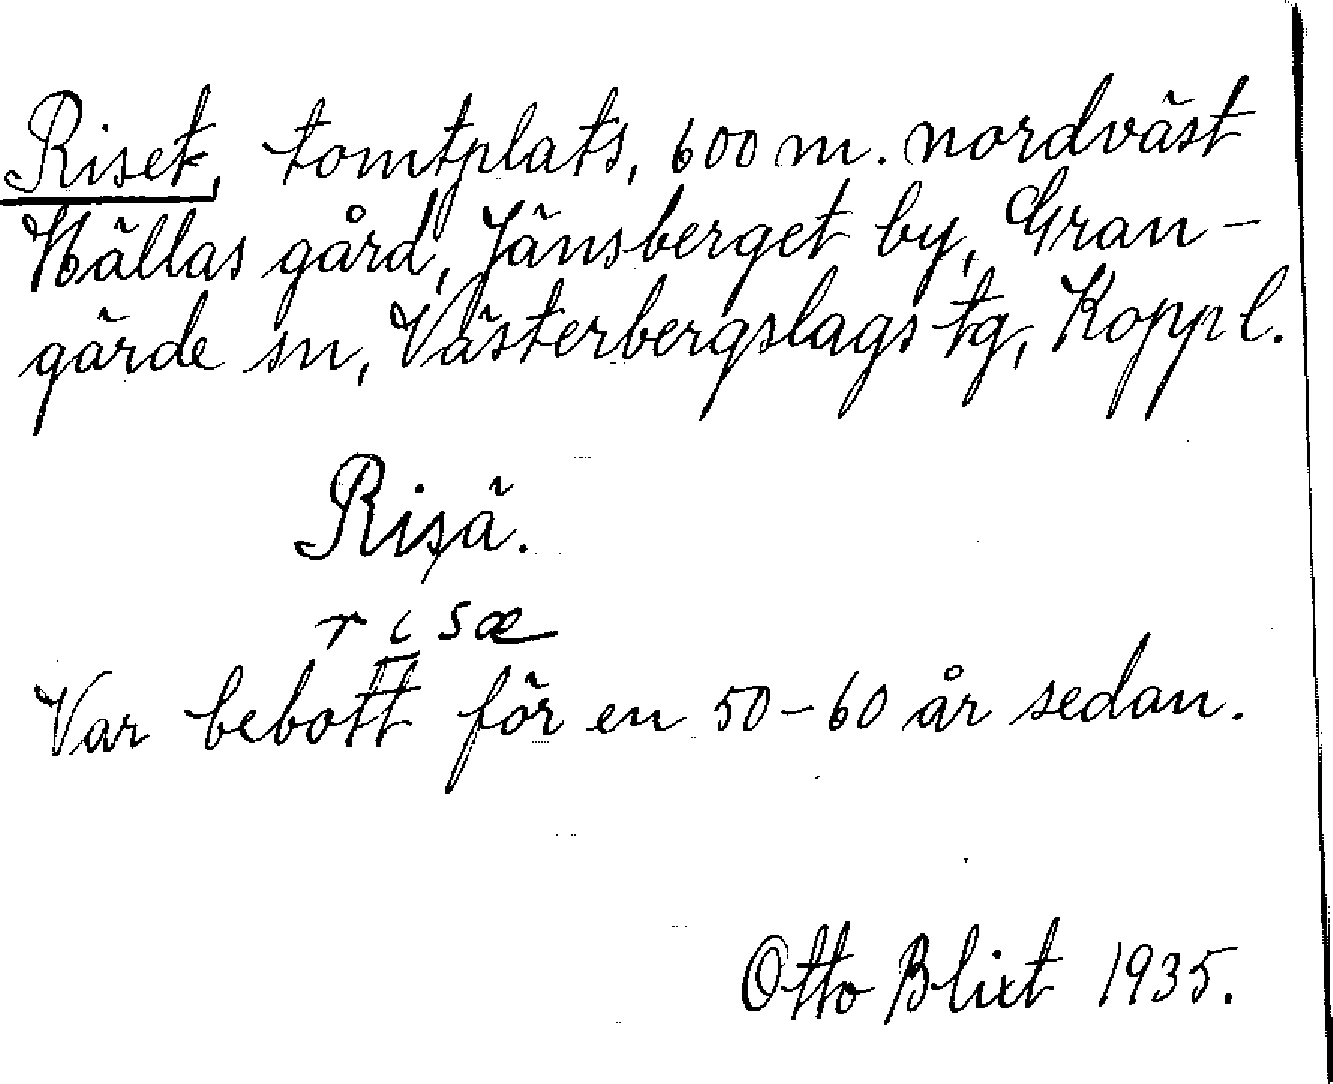 Riset, tomtplats, 600 m. nordväst
Hällas gård, Jänsberget by, Gran-
gärde sn, Västerbergslags tg, Kopp l.
Risä.
risæ
Var bebott för en 50-60 år sedan.
Otto Blixt 1935.